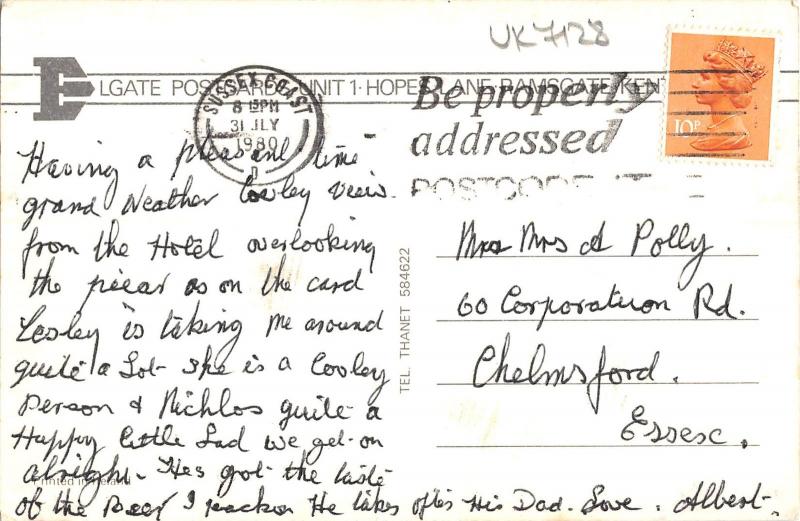 UK7128
ELGATE POSTCARDS UNIT 1 · HOPES LANE RAMSGATE KENT
SUSSEX COAST
8 15PM
31 JLY
1980
D
Be properly
addressed
POSTCODE IT
10P
Having a pleasant time
grand Weather Lovley view
from the Hotel overlooking
the piear as on the card
Lesley is taking me around
quite a Lot she is a Lovley
Person & Nichlos quite a
Happy Little Lad we get on
alright. Hes got the taste
of the Beer I reackon He takes after His Dad. Love. Albert.
Printed in Ireland
TEL. THANET 584622
Mr Mrs A Polly.
60 Corporation Rd.
Chelmsford.
Essex.